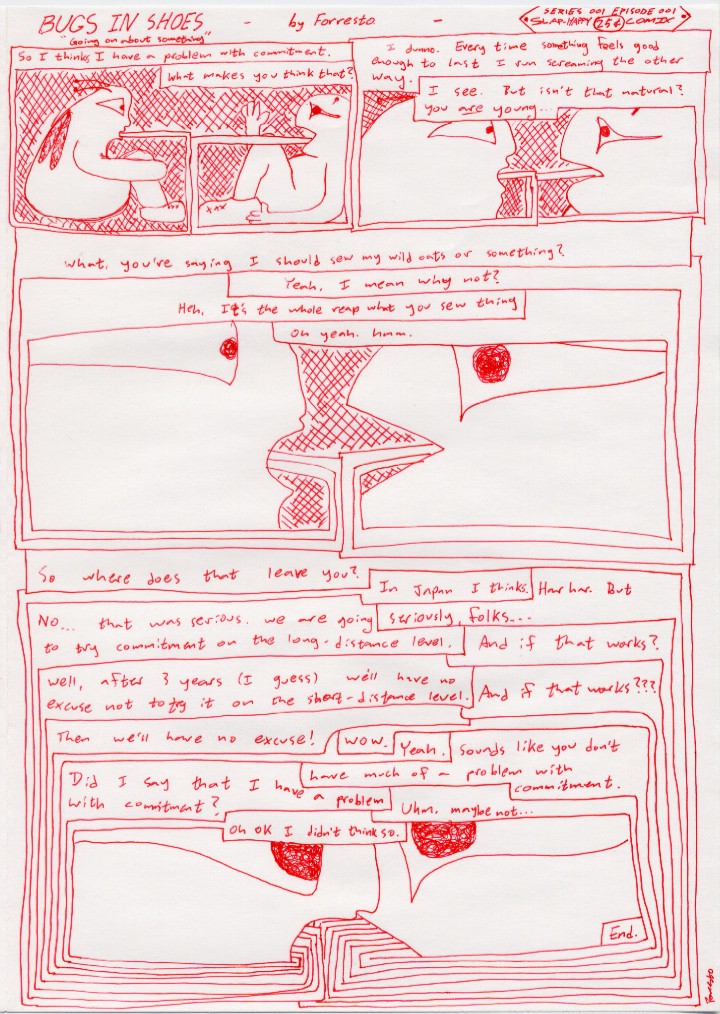 BUGS IN SHOES - by Forresto -
"Going on about something"
SERIES 001 EPISODE 001
SLAP-HAPPY 25¢ COMIX
So I think I have a problem with commitment.
What makes you think that?
I dunno. Every time something feels good
enough to last I run screaming the other
way.
I see. But isn't that natural?
You are young...
xxx
What, you're saying I should sew my wild oats or something?
Yeah, I mean why not?
Heh, It's the whole reap what you sew thing
Oh yeah. hmm.
So where does that leave you?
In Japan I thinks. Har har. But
seriously, folks...
No... that was serious. we are going
to try commitment on the long-distance level.
And if that works?
well, after 3 years (I guess) we'll have no
excuse not to try it on the short-distance level.
And if that works???
Then we'll have no excuse!
WOW.
Yeah.
Sounds like you don't
have much of a problem with
commitment.
Did I say that I have a problem
with comitment?
Uhm. maybe not...
Oh OK I didn't think so.
End.
forresto